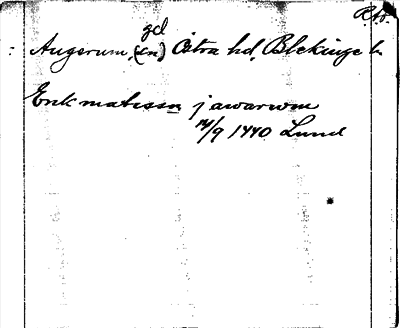 R.A.
gd
Augerum, (sn) Östra hd, Blekinge l.
Erik matisson j awarwm
14/9 1440 Lund